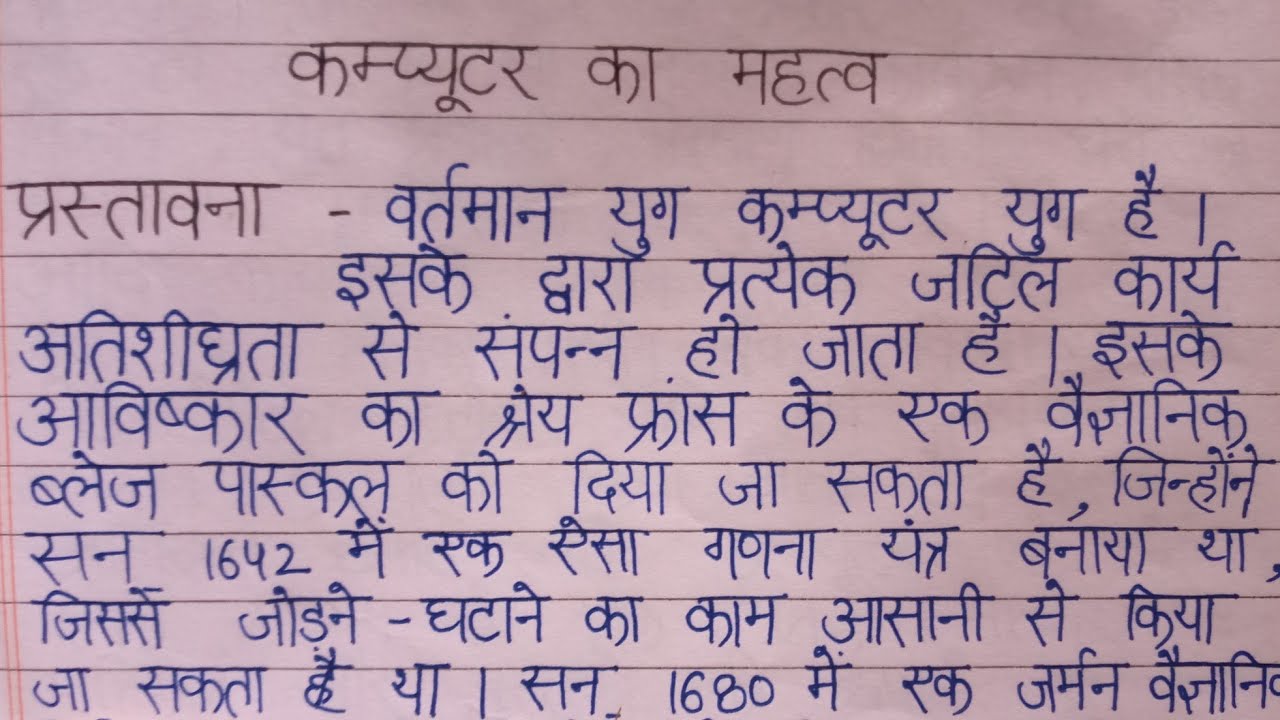 कम्प्यूटर का महत्व
प्रस्तावना - वर्तमान युग कम्प्यूटर युग है ।
इसके द्वारा प्रत्येक जटिल कार्य
अतिशीघ्रता से संपन्न हो जाता है । इसके
आविष्कार का श्रेय फ्रांस के एक वैज्ञानिक
ब्लेज पास्कल को दिया जा सकता है, जिन्होंने
सन् 1642 में एक ऐसा गणना यंत्र बनाया था,
जिससे जोड़ने - घटाने का काम आसानी से किया
जा सकता है था । सन् 1680 में एक जर्मन वैज्ञानिक